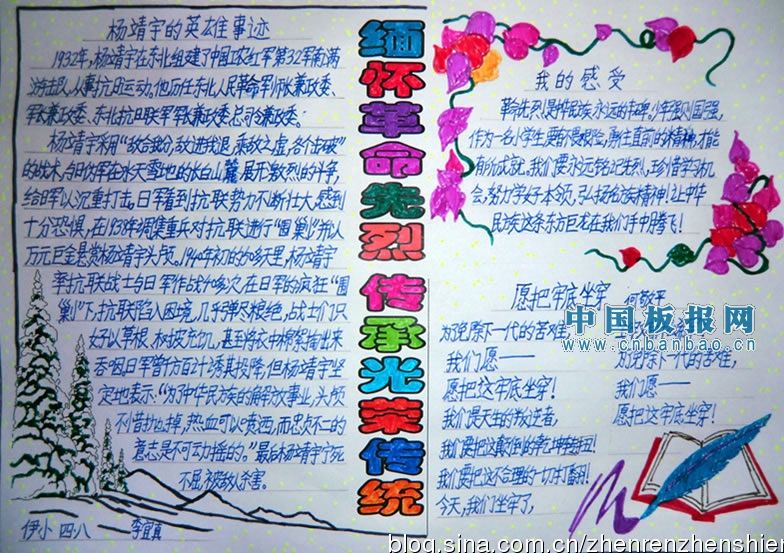 杨靖宇的英雄事迹
1932年,杨靖宇在东北组建了中国工农红军第32军南满
游击队,从事抗日运动。他历任东北人民革命军师长兼政委、
军长兼政委、东北抗日联军军长兼政委总司令兼政委。
杨靖宇采用“敌合我分,敌进我退,乘敌之虚,各个击破”
的战术,与日伪军在冰天雪地的长白山麓,展开激烈的斗争,
给日军以沉重打击。日军看到抗联势力不断壮大,感到
十分恐惧,在1938年调集重兵对抗联进行“围剿”,并以
万元巨金悬赏杨靖宇头颅。1940年初的60多天里,杨靖宇
率抗联战士与日军作战40多次,在日军的疯狂“围
剿”下,抗联陷入困境,几乎弹尽粮绝,战士们只
好以草根、树皮充饥,甚至将衣中棉絮掏出来
吞咽。日军曾千方百计诱其投降,但杨靖宇坚
定地表示:“为了中华民族的解放事业,头颅
不惜抛掉,热血可以喷洒,而忠贞不二的
意志是不可动摇的。”最后杨靖宇宁死
不屈,被敌人杀害。
伊小 四·八 李宜真
缅怀革命先烈 传承光荣传统
我的感受
革命先烈是中华民族永远的丰碑。少年强则国强,
作为一名小学生,要有不畏艰险,勇往直前的精神,才能
有所成就。我们要永远铭记先烈,珍惜学习机
会,努力学好本领,弘扬民族精神!让中华
民族这条东方巨龙在我们手中腾飞!
愿把牢底坐穿 何敬平
为免除下一代的苦难,
我们愿——
愿把这牢底坐穿!
我们是天生的叛逆者,
我们要把这颠倒的乾坤扭转!
我们要把这不合理的一切打翻!
今天,我们坐牢了,
为免除下一代的苦难,
我们愿——
愿把这牢底坐穿!
中国板报网
www.cnbanbao.cn
blog.sina.com.cn/zhenrenzhenshier